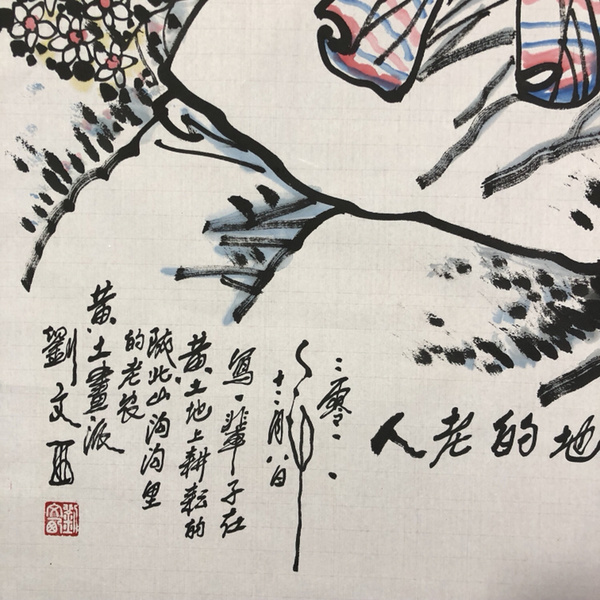 地的老人
二零一一
十二月八日
寫一辈子在
黄土地上耕耘的
陕北山沟沟里
的老农
黄土畫派
劉文西